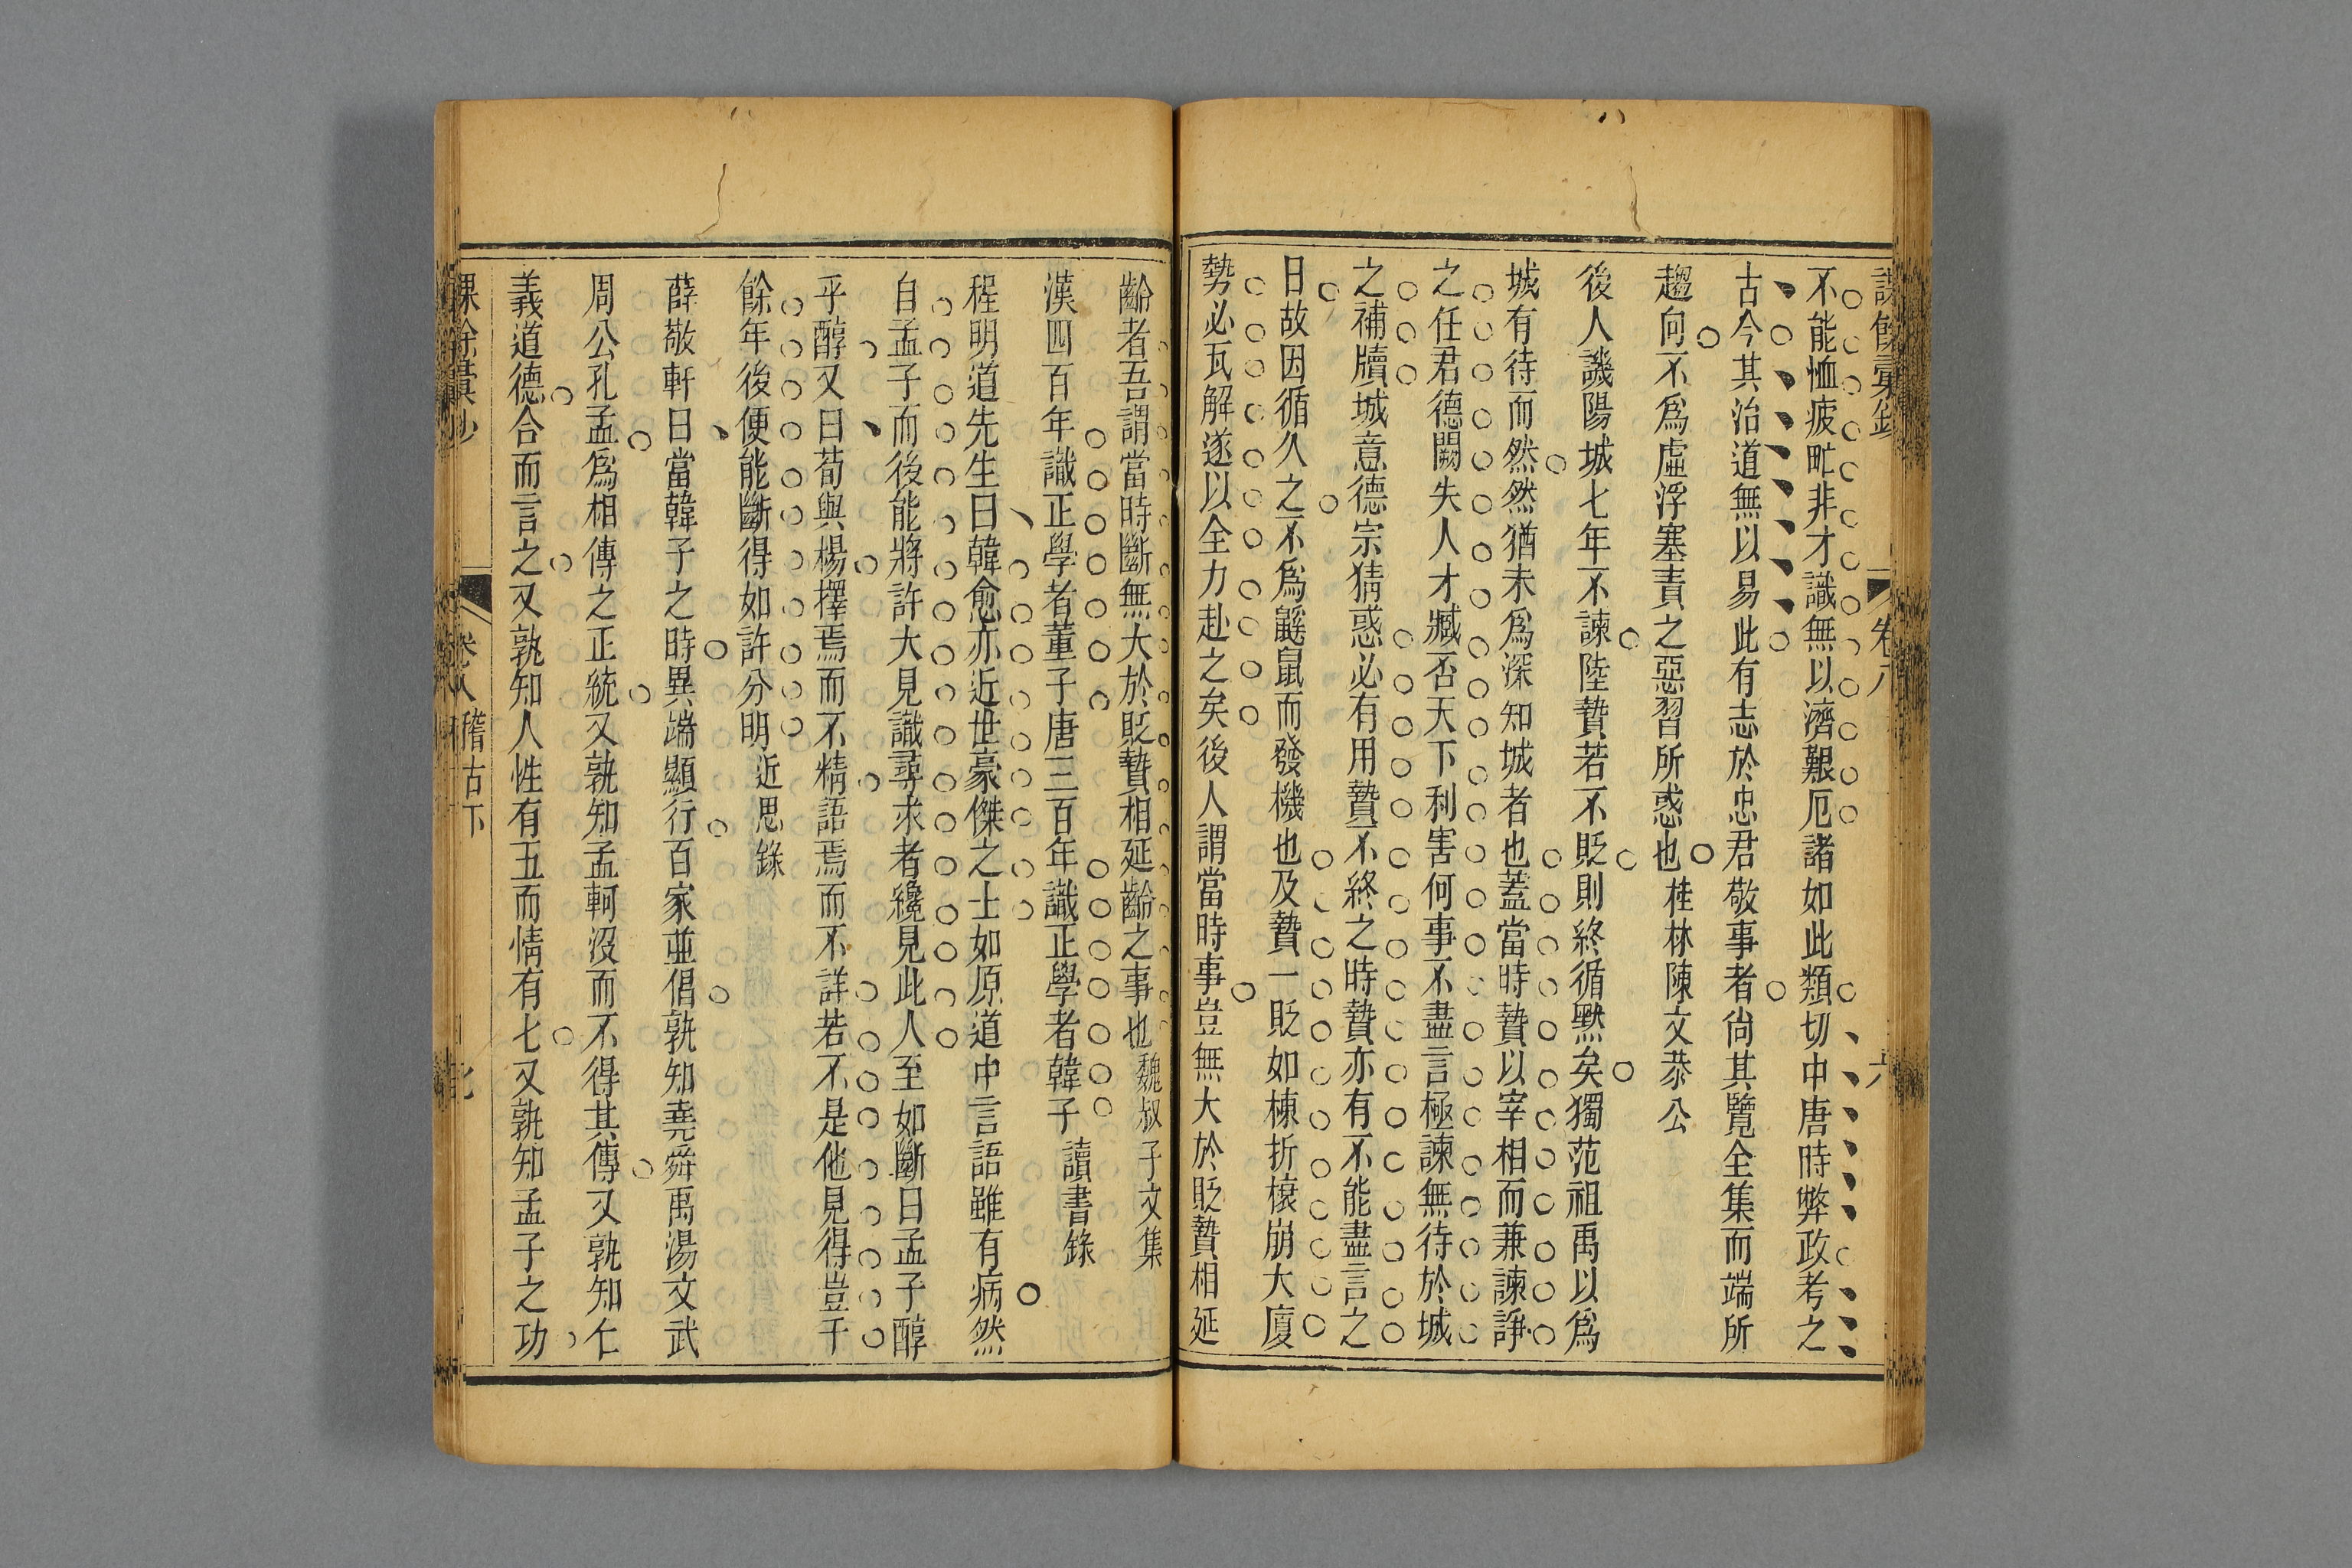 不能恤疲甿非才識無以濟艱厄諸如此類切中唐時弊政考之
古今其治道無以易此有志於忠君敬事者尙其覽全集而端所
趨向不爲虛浮塞責之惡習所惑也桂林陳文恭公
後人譏陽城七年不諫陸贄若不貶則終循黙矣獨范祖禹以爲
城有待而然然猶未爲深知城者也蓋當時贄以宰相而兼諫諍
之任君德闕失人才臧否天下利害何事不盡言極諫無待於城
之補牘城意德宗猜惑必有用贄不終之時贄亦有不能盡言之
日故因循久之不爲鼷鼠而發機也及贄一貶如棟折榱崩大廈
勢必瓦解遂以全力赴之矣後人謂當時事豈無大於貶贄相延
齡者吾謂當時斷無大於貶贄相延齡之事也魏叔子文集
漢四百年識正學者董子唐三百年識正學者韓子讀書錄
程明道先生曰韓愈亦近世豪傑之士如原道中言語雖有病然
自孟子而後能將許大見識尋求者纔見此人至如斷曰孟子醇
乎醇又曰荀與楊擇焉而不精語焉而不詳若不是他見得豈千
餘年後便能斷得如許分明近思錄
薛敬軒曰當韓子之時異端顯行百家並倡孰知堯舜禹湯文武
周公孔孟爲相傳之正統又孰知孟軻沒而不得其傳又孰知仁
義道德合而言之又孰知人性有五而情有七又孰知孟子之功
卷八 稽古下